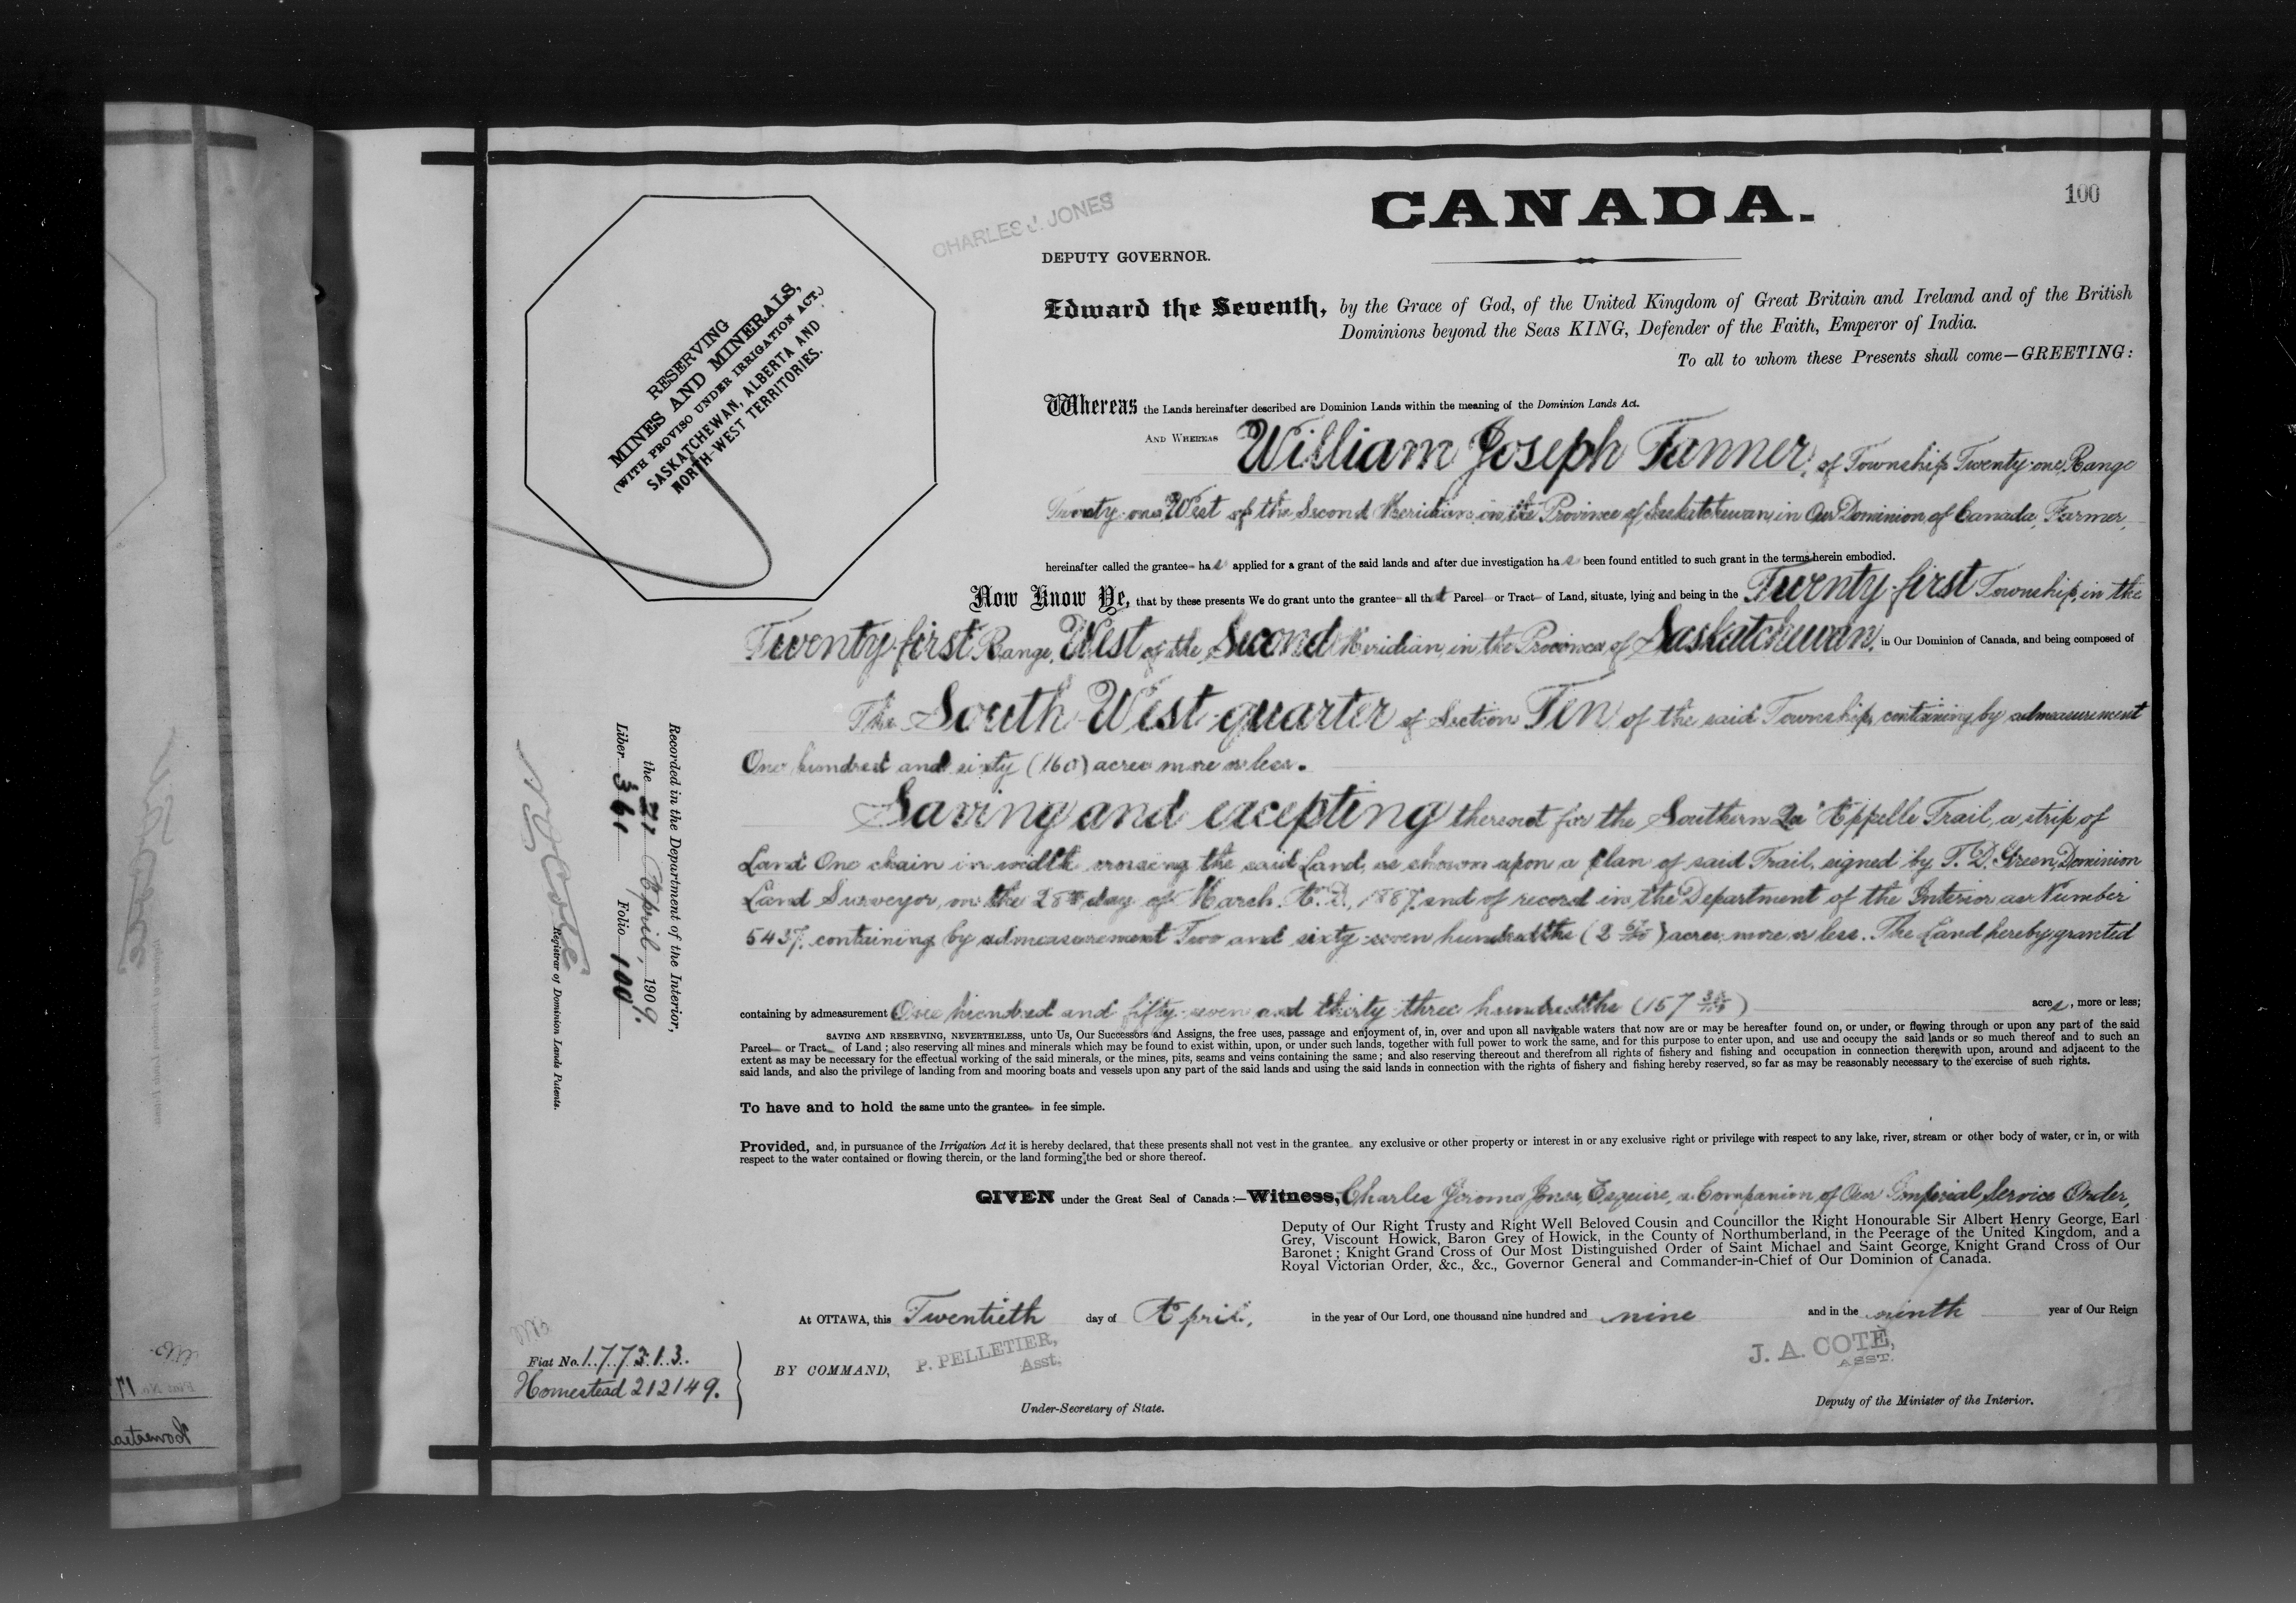 100
CANADA.
CHARLES J. JONES
DEPUTY GOVERNOR.
RESERVING
MINES AND MINERALS,
(WITH PROVISO UNDER IRRIGATION ACT.)
SASKATCHEWAN, ALBERTA AND
NORTH-WEST TERRITORIES.
Edward the Seventh, by the Grace of God, of the United Kingdom of Great Britain and Ireland and of the British
Dominions beyond the Seas KING, Defender of the Faith, Emperor of India.
To all to whom these Presents shall come—GREETING:
Whereas the Lands hereinafter described are Dominion Lands within the meaning of the Dominion Lands Act.
AND WHEREAS William Joseph Tanner, of Township Twenty-one, Range
Twenty-one, West of the Second Meridian, in the Province of Saskatchewan, in Our Dominion of Canada, Farmer,
hereinafter called the grantee has applied for a grant of the said lands and after due investigation has been found entitled to such grant in the terms herein embodied.
Now Know Ye, that by these presents We do grant unto the grantee all that Parcel or Tract of Land, situate, lying and being in the Twenty-first Township, in the
Twenty-first Range, West of the Second Meridian, in the Province of Saskatchewan, in Our Dominion of Canada, and being composed of
The South West quarter of Section Ten of the said Township, containing by admeasurement
One hundred and sixty (160) acres more or less.
Saving and excepting thereout for the Southern Qu'Appelle Trail, a strip of
Land One chain in width crossing the said Land, as shown upon a plan of said Trail, signed by T. D. Green, Dominion
Land Surveyor, on the 28th day of March, A.D., 1887, and of record in the Department of the Interior as Number
5437, containing by admeasurement Two and sixty-seven hundredths (2 67/100) acres, more or less. The Land hereby granted
containing by admeasurement One hundred and fifty-seven and thirty-three hundredths (157 33/100) acres, more or less;
SAVING AND RESERVING, NEVERTHELESS, unto Us, Our Successors and Assigns, the free uses, passage and enjoyment of, in, over and upon all navigable waters that now are or may be hereafter found on, or under, or flowing through or upon any part of the said
Parcel or Tract of Land; also reserving all mines and minerals which may be found to exist within, upon, or under such lands, together with full power to work the same, and for this purpose to enter upon, and use and occupy the said lands or so much thereof and to such an
extent as may be necessary for the effectual working of the said minerals, or the mines, pits, seams and veins containing the same; and also reserving thereout and therefrom all rights of fishery and fishing and occupation in connection therewith upon, around and adjacent to the
said lands, and also the privilege of landing from and mooring boats and vessels upon any part of the said lands and using the said lands in connection with the rights of fishery and fishing hereby reserved, so far as may be reasonably necessary to the exercise of such rights.
To have and to hold the same unto the grantee in fee simple.
Provided, and, in pursuance of the Irrigation Act it is hereby declared, that these presents shall not vest in the grantee any exclusive or other property or interest in or any exclusive right or privilege with respect to any lake, river, stream or other body of water, or in, or with
respect to the water contained or flowing therein, or the land forming the bed or shore thereof.
GIVEN under the Great Seal of Canada:—Witness, Charles Jerome Jones, Esquire, a Companion of Our Imperial Service Order,
Deputy of Our Right Trusty and Right Well Beloved Cousin and Councillor the Right Honourable Sir Albert Henry George, Earl
Grey, Viscount Howick, Baron Grey of Howick, in the County of Northumberland, in the Peerage of the United Kingdom, and a
Baronet; Knight Grand Cross of Our Most Distinguished Order of Saint Michael and Saint George, Knight Grand Cross of Our
Royal Victorian Order, &c., &c., Governor General and Commander-in-Chief of Our Dominion of Canada.
At OTTAWA, this Twentieth day of April, in the year of Our Lord, one thousand nine hundred and nine and in the ninth year of Our Reign
BY COMMAND,
P. PELLETIER,
Asst.
Under-Secretary of State.
J. A. COTE,
ASST.
Deputy of the Minister of the Interior.
Fiat No. 177313.
Homestead 212149.
Recorded in the Department of the Interior,
the 21 April, 1909.
Liber 361 Folio 100
Registrar of Dominion Lands Patents.